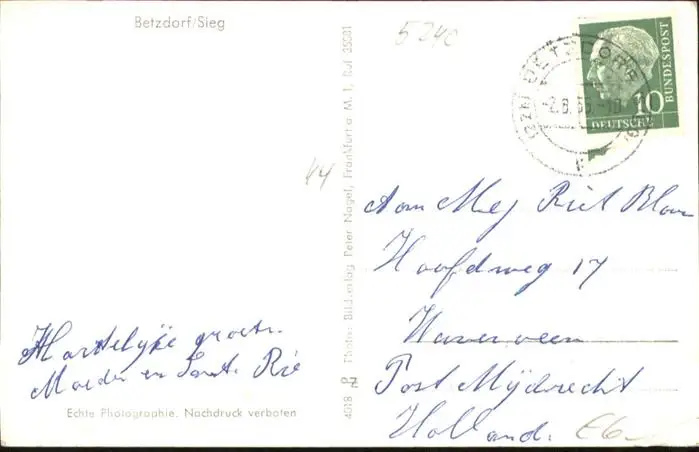 Betzdorf/Sieg
5240
44
BETZDORF
-2.8.56.-18
10
DEUTSCHE
BUNDESPOST
Aan Mej Riet Blom
Hoofdweg 17
Waverveen
Post Mijdrecht
Holland.
Hartelijke groeten
Moeder en Tante Rie
Echte Photographie. Nachdruck verboten
4018 Photo- Bild-verlag Peter Nagel, Frankfurt a. M. 1, Ruf 35081